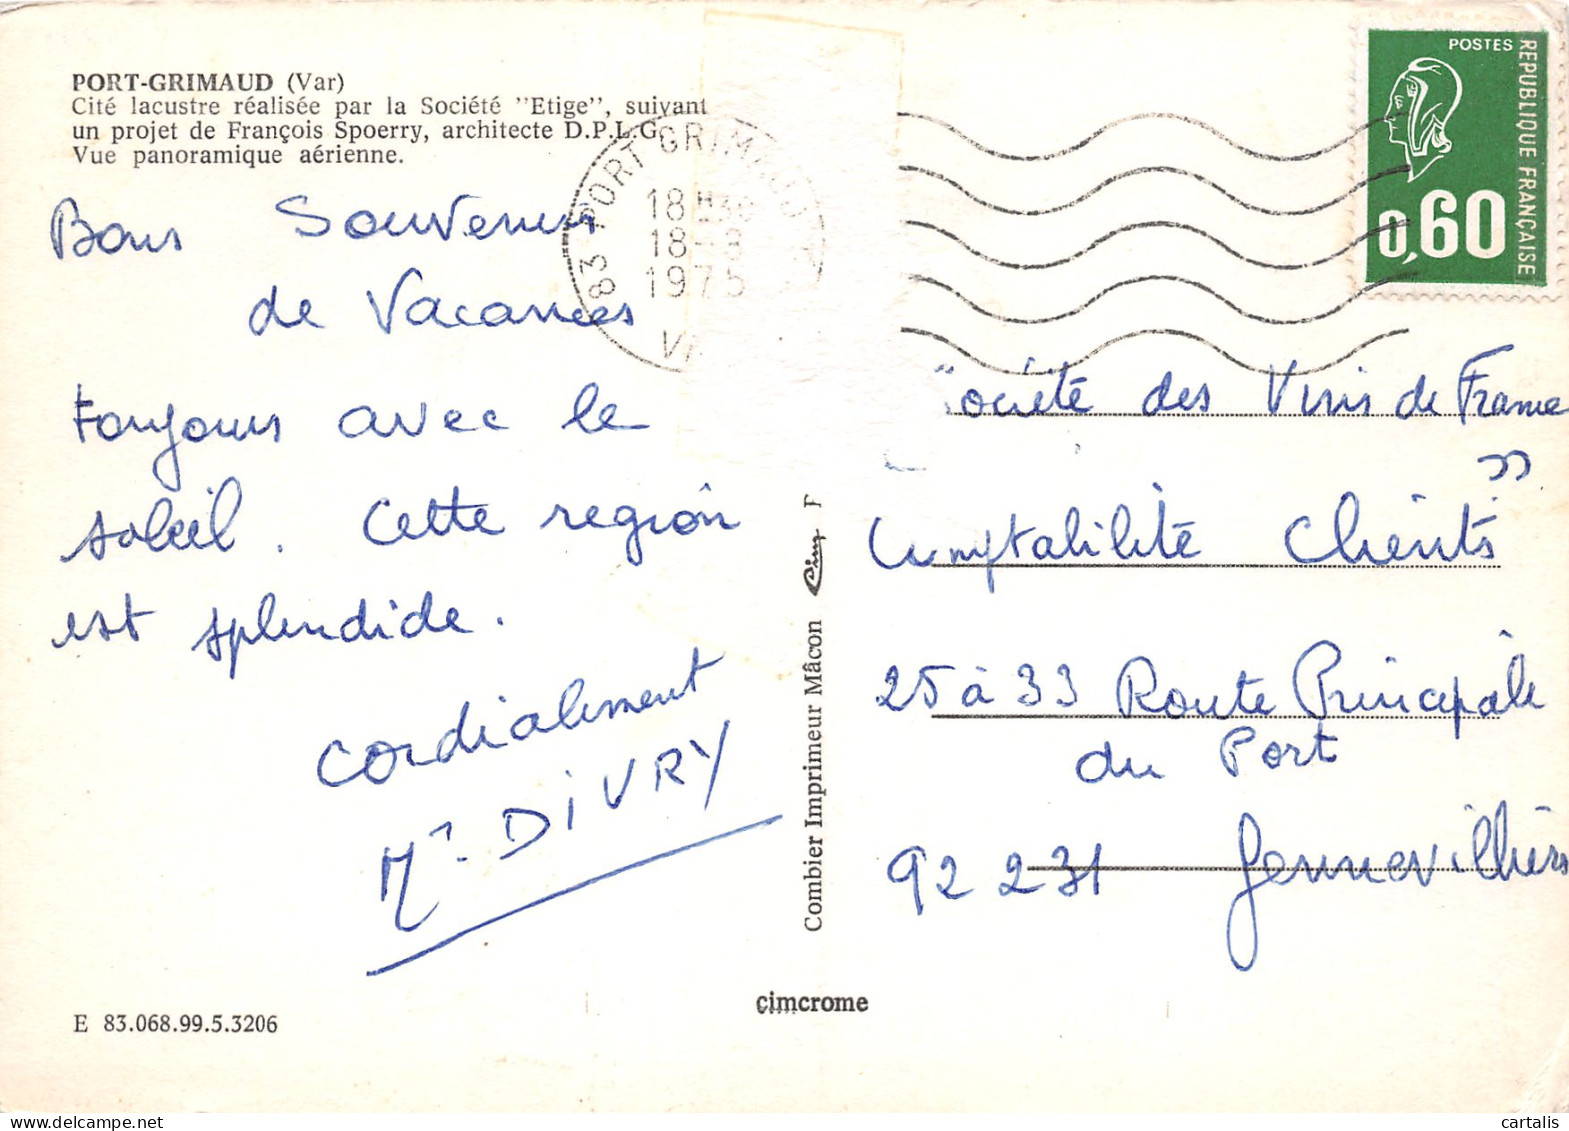 PORT-GRIMAUD (Var)
Cité lacustre réalisée par la Société "Etige", suivant
un projet de François Spoerry, architecte D.P.L.G.
Vue panoramique aérienne.
Bons Souvenirs
de Vacances
toujours avec le
soleil. Cette région
est splendide.
cordialement
Mr. DIVRY
E 83.068.99.5.3206
83 PORT GRIMAUD
18H30
18-8
1975
Combier Imprimeur Mâcon Cim
cimcrome
POSTES
REPUBLIQUE FRANÇAISE
0,60
"Société des Vins de France"
Comptabilité Clients
25 à 33 Route Principale
du Port
92 231 Gennevilliers
cartalis